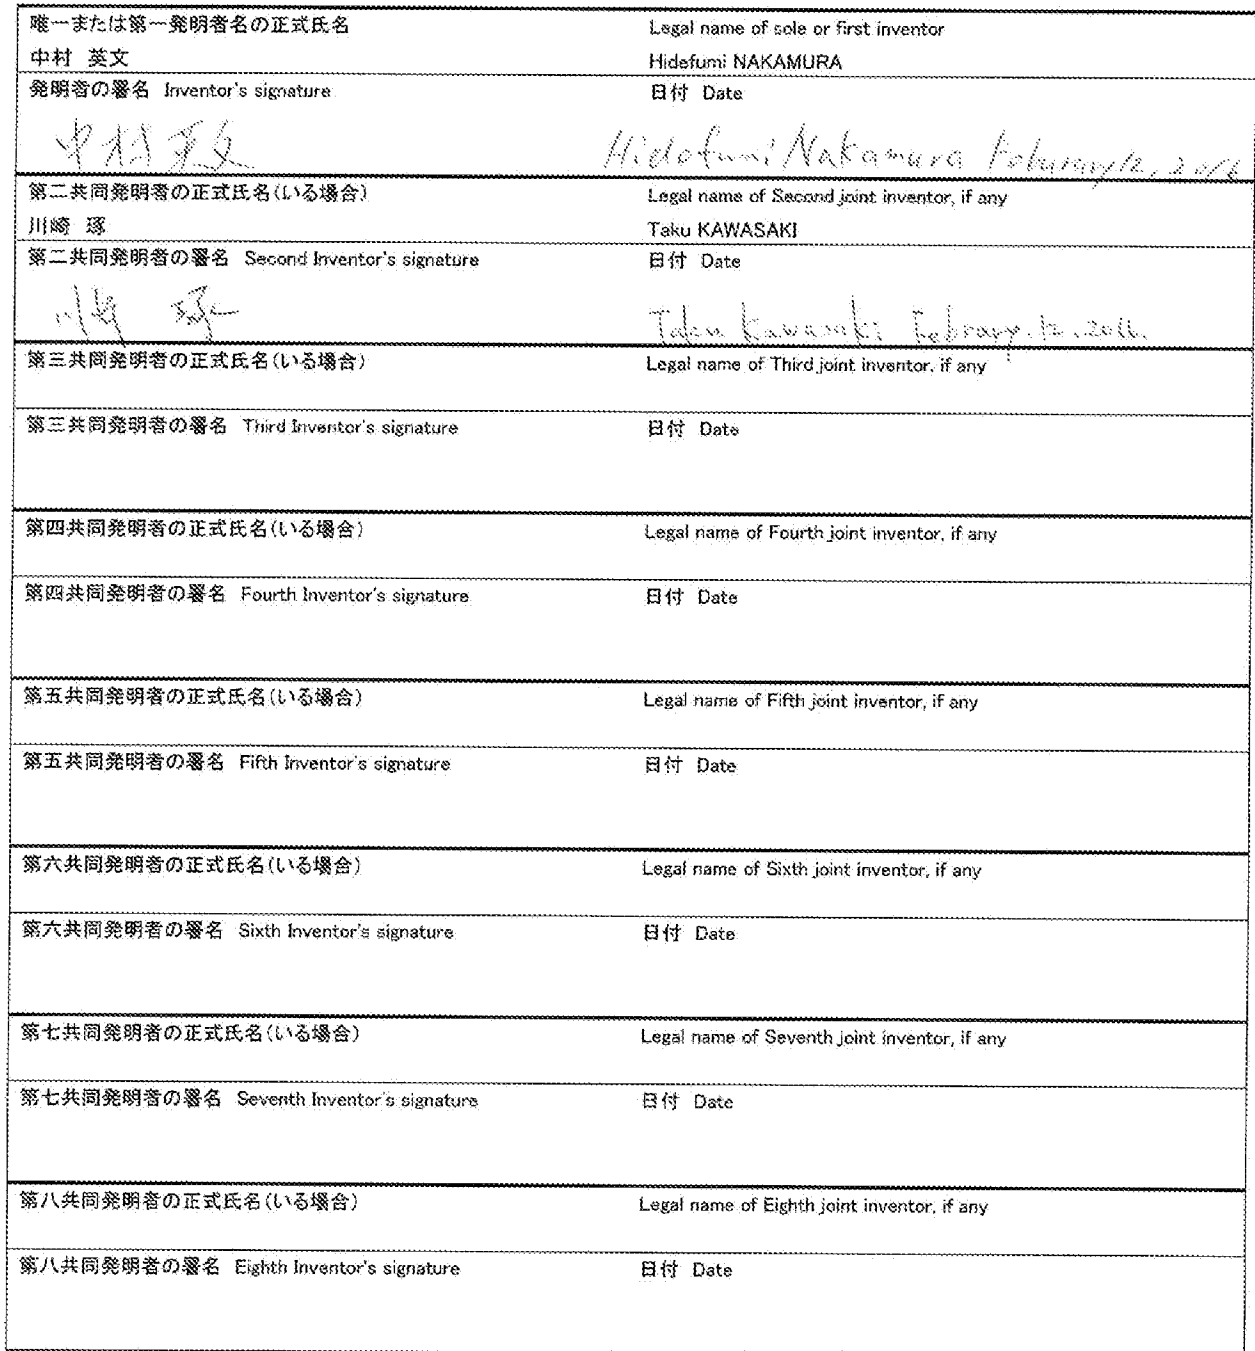 唯一または第一発明者名の正式氏名 Legal name of sole or first inventor
中村 英文 Hidefumi NAKAMURA
発明者の署名 Inventor's signature 日付 Date
中村 英文 Hidefumi Nakamura February 12, 2016
第二共同発明者の正式氏名(いる場合) Legal name of Second joint inventor, if any
川崎 琢 Taku KAWASAKI
第二共同発明者の署名 Second Inventor's signature 日付 Date
川崎 琢 Taku Kawasaki February. 12. 2016.
第三共同発明者の正式氏名(いる場合) Legal name of Third joint inventor, if any
第三共同発明者の署名 Third Inventor's signature 日付 Date
第四共同発明者の正式氏名(いる場合) Legal name of Fourth joint inventor, if any
第四共同発明者の署名 Fourth Inventor's signature 日付 Date
第五共同発明者の正式氏名(いる場合) Legal name of Fifth joint inventor, if any
第五共同発明者の署名 Fifth Inventor's signature 日付 Date
第六共同発明者の正式氏名(いる場合) Legal name of Sixth joint inventor, if any
第六共同発明者の署名 Sixth Inventor's signature 日付 Date
第七共同発明者の正式氏名(いる場合) Legal name of Seventh joint inventor, if any
第七共同発明者の署名 Seventh Inventor's signature 日付 Date
第八共同発明者の正式氏名(いる場合) Legal name of Eighth joint inventor, if any
第八共同発明者の署名 Eighth Inventor's signature 日付 Date